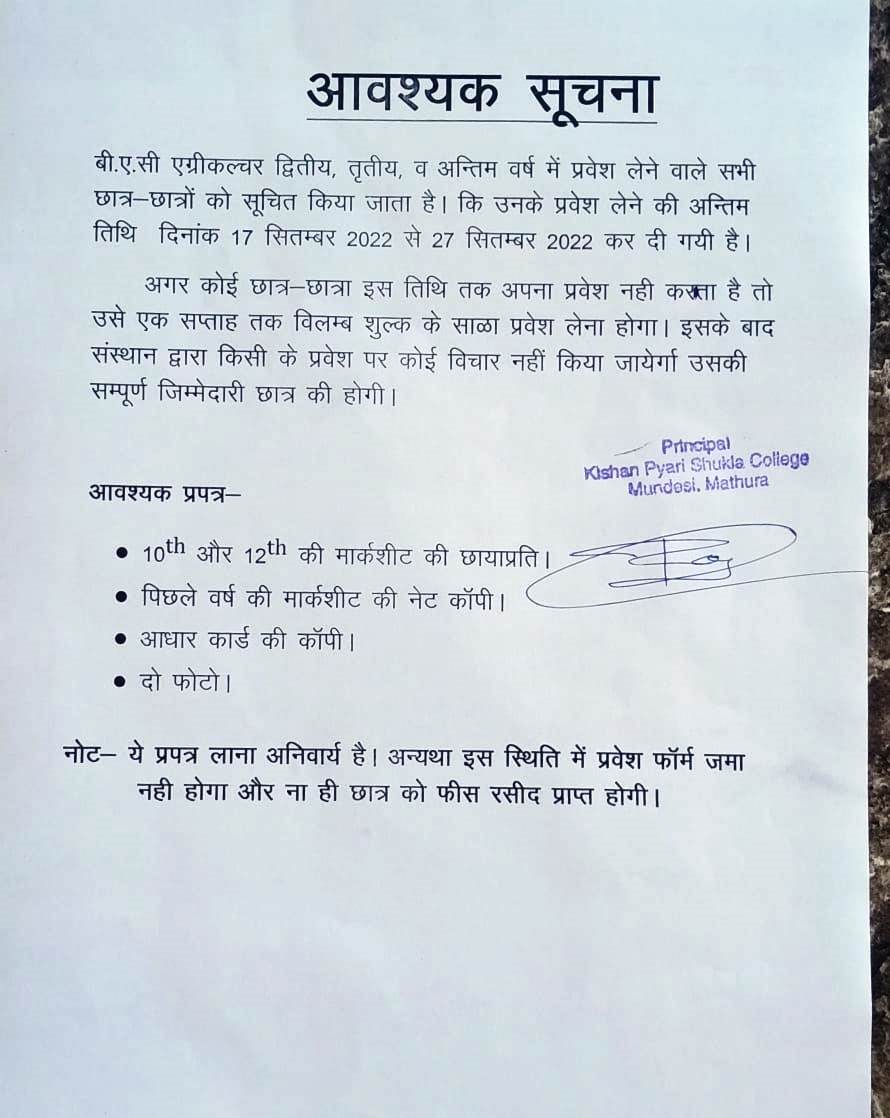 आवश्यक सूचना
बी.ए.सी एग्रीकल्चर द्वितीय, तृतीय, व अन्तिम वर्ष में प्रवेश लेने वाले सभी
छात्र–छात्रों को सूचित किया जाता है। कि उनके प्रवेश लेने की अन्तिम
तिथि दिनांक 17 सितम्बर 2022 से 27 सितम्बर 2022 कर दी गयी है।
अगर कोई छात्र–छात्रा इस तिथि तक अपना प्रवेश नही करता है तो
उसे एक सप्ताह तक विलम्ब शुल्क के साळा प्रवेश लेना होगा। इसके बाद
संस्थान द्वारा किसी के प्रवेश पर कोई विचार नहीं किया जायेर्गा उसकी
सम्पूर्ण जिम्मेदारी छात्र की होगी।
Principal
Kishan Pyari Shukla College
Mundesi, Mathura
आवश्यक प्रपत्र–
• 10th और 12th की मार्कशीट की छायाप्रति।
• पिछले वर्ष की मार्कशीट की नेट कॉपी।
• आधार कार्ड की कॉपी।
• दो फोटो।
नोट– ये प्रपत्र लाना अनिवार्य है। अन्यथा इस स्थिति में प्रवेश फॉर्म जमा
नही होगा और ना ही छात्र को फीस रसीद प्राप्त होगी।